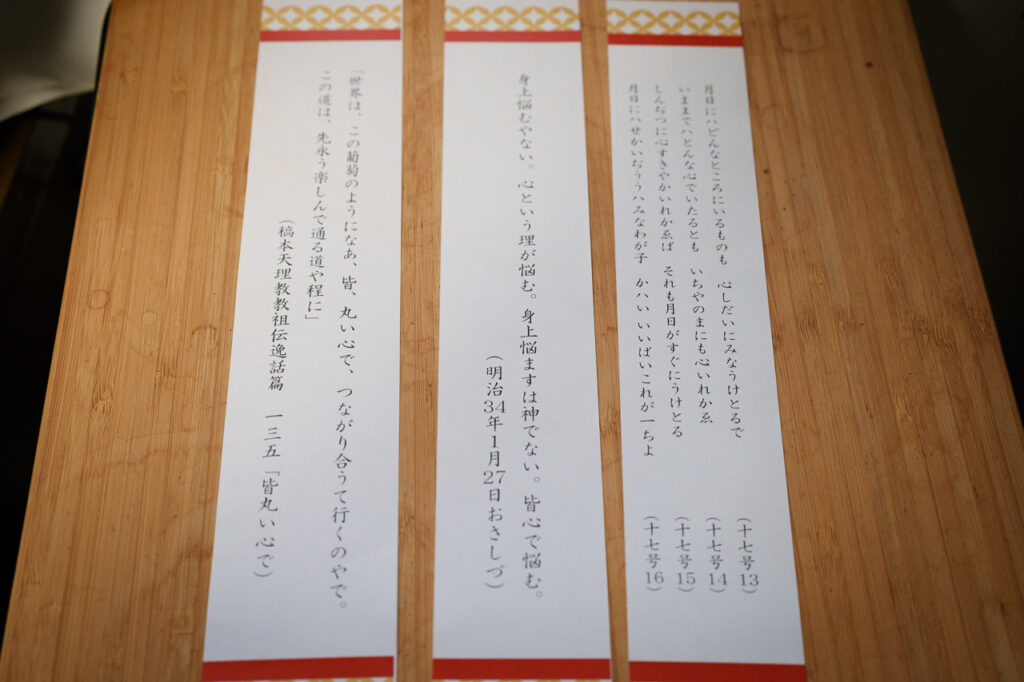 月日にハどんなところにいるものも　心しだいにみなうけとるで　（十七号13）
いまゝでハとんな心でいたるとも　いちやのまにも心いれかゑ　（十七号14）
しんぢつに心すきやかいれかゑば　それも月日がすぐにうけとる　（十七号15）
月日にハせかいぢううハみなわが子　かハいいいばいこれが一ちよ　（十七号16）
身上悩むやない。心という理が悩む。身上悩ますは神でない。皆心で悩む。
（明治34年1月27日おさしづ）
「世界は、この葡萄のようになあ、皆、丸い心で、つながり合うて行くのやで。
この道は、先永う楽しんで通る道や程に」
（稿本天理教教祖伝逸話篇　一三五「皆丸い心で）